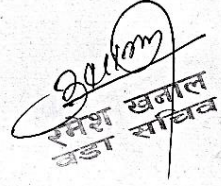 रमेश खनाल
वडा सचिव